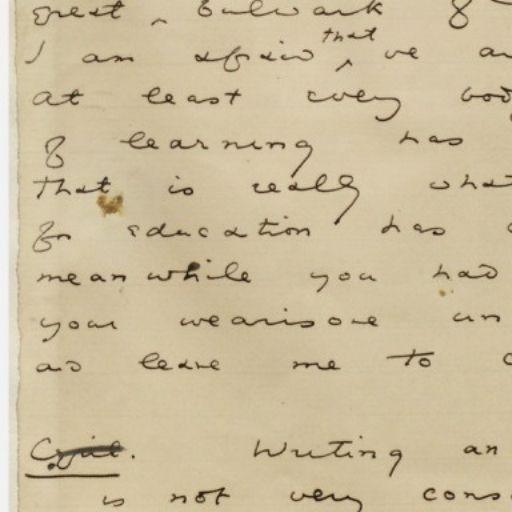 great ‸ bulwark of
I am afraid ‸that we ar
at least every bod
of learning has
that is really what
for education has
meanwhile you had
your wearisome un
and leave me to
Cyril. Writing an
is not very cons